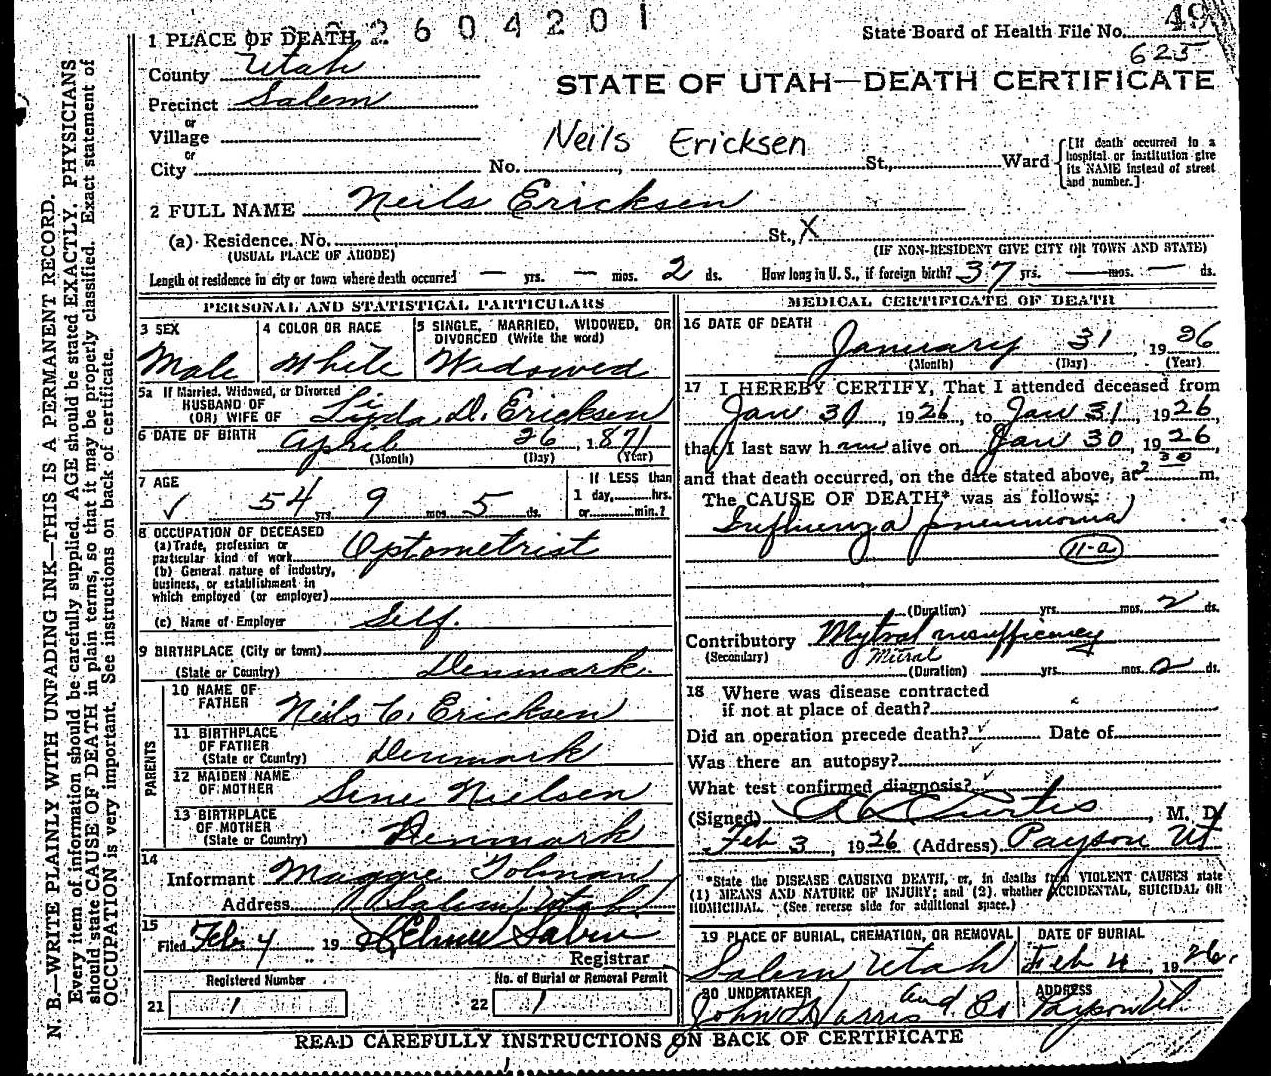 2604201
State Board of Health File No. 49
625
1 PLACE OF DEATH
County Utah
STATE OF UTAH—DEATH CERTIFICATE
Precinct Salem
or
Village
or
Neils Ericksen
City No. St., Ward
[If death occurred in a hospital or institution give its NAME instead of street and number.]
2 FULL NAME Neils Ericksen
(a) Residence. No. St., X
(USUAL PLACE OF ABODE) (IF NON-RESIDENT GIVE CITY OR TOWN AND STATE)
Length of residence in city or town where death occurred — yrs. — mos. 2 ds. How long in U. S., if foreign birth? 37 yrs. — mos. — ds.
PERSONAL AND STATISTICAL PARTICULARS
3 SEX
Male
4 COLOR OR RACE
White
5 SINGLE, MARRIED, WIDOWED, OR DIVORCED (Write the word)
Widowed
5a If Married, Widowed, or Divorced
HUSBAND OF
(OR) WIFE OF Linda D. Ericksen
6 DATE OF BIRTH April 26, 1871
(Month) (Day) (Year)
7 AGE
54 yrs. 9 mos. 5 ds.
If LESS than
1 day, hrs.
or min.?
8 OCCUPATION OF DECEASED
(a) Trade, profession or
particular kind of work Optometrist
(b) General nature of industry,
business, or establishment in
which employed (or employer)
(c) Name of Employer Self.
9 BIRTHPLACE (City or town)
(State or Country) Denmark.
PARENTS
10 NAME OF
FATHER Neils C. Ericksen
11 BIRTHPLACE
OF FATHER
(State or Country) Denmark
12 MAIDEN NAME
OF MOTHER Sene Nielsen
13 BIRTHPLACE
OF MOTHER
(State or Country) Denmark
14
Informant Maggie Tolman
Address Salem, Utah.
15
Filed Feb 4 19
Registrar
Registered Number
21 1
No. of Burial or Removal Permit
22 1
MEDICAL CERTIFICATE OF DEATH
16 DATE OF DEATH
January 31, 1926
(Month) (Day) (Year)
17 I HEREBY CERTIFY, That I attended deceased from
Jan 30, 1926, to Jan 31, 1926,
that I last saw him alive on Jan 30, 1926,
and that death occurred, on the date stated above, at 2 30 m.
The CAUSE OF DEATH* was as follows:
Influenza pneumonia
11-a
(Duration) yrs. mos. 2 ds.
Contributory Mytral insufficiency
(Secondary) Mitral
(Duration) yrs. mos. 2 ds.
18 Where was disease contracted
if not at place of death?
Did an operation precede death? Date of
Was there an autopsy?
What test confirmed diagnosis?
(Signed) Curtis, M. D.
Feb 3, 1926 (Address) Payson Ut
*State the DISEASE CAUSING DEATH, or, in deaths from VIOLENT CAUSES state
(1) MEANS AND NATURE OF INJURY; and (2), whether ACCIDENTAL, SUICIDAL OR
HOMICIDAL. (See reverse side for additional space.)
19 PLACE OF BURIAL, CREMATION, OR REMOVAL
Salem Utah
DATE OF BURIAL
Feb 4, 1926.
20 UNDERTAKER
John Harris and Co
ADDRESS
Payson Ut
READ CAREFULLY INSTRUCTIONS ON BACK OF CERTIFICATE
N. B.—WRITE PLAINLY WITH UNFADING INK—THIS IS A PERMANENT RECORD.
Every item of information should be carefully supplied. AGE should be stated EXACTLY. PHYSICIANS
should state CAUSE OF DEATH in plain terms, so that it may be properly classified. Exact statement of
OCCUPATION is very important. See instructions on back of certificate.